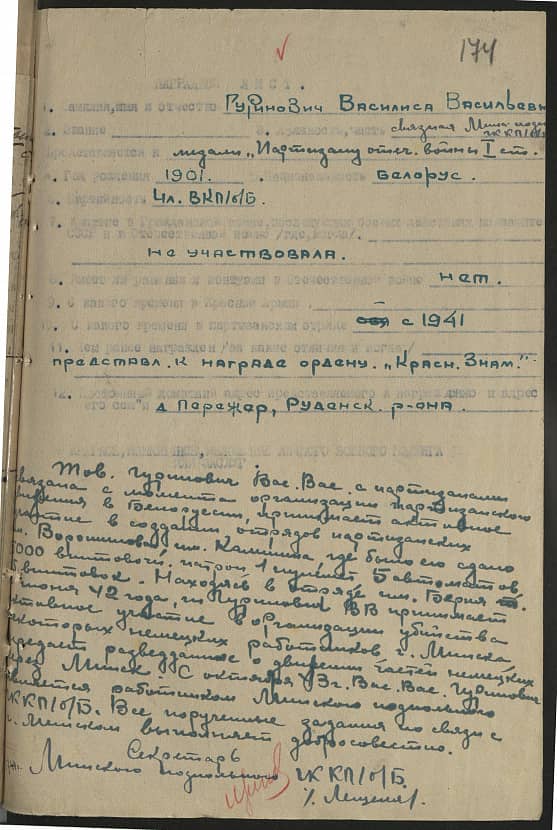 174
НАГРАДНОЙ ЛИСТ.
1. Фамилия, имя и отчество Гуринович Василиса Васильевн
2. Звание 3. Должность, часть связная Минск. подп.
ГК КП/б/Б
Представляется к медали "Партизану отеч. войны I ст.
4. Год рождения 1901. 5. Национальность Белорус.
6. Партийность Чл. ВКП/б/Б.
7. Участие в Гражданской войне, последующих боевых действиях по защите
СССР и в Отечественной войне /где, когда/.
не участвовала.
8. Имеет ли ранения и контузии в Отечественной войне нет.
9. С какого времени в Красной Армии
10. С какого времени в партизанском отряде с 1941
11. Чем ранее награжден /за какие отличия и когда/
представл. к награде ордену. "Красн. Знам."
12. Постоянный домашний адрес представляемого к награждению и адрес
его семьи д Пережар, Руденск. р-она.
Тов. Гуринович Вас. Вас. с партизанами
связана с момента организации партизанского
движения в Белоруссии, принимает активное
участие в создании отрядов партизанских
им. Ворошилова им. Калинина где было ею сдано
5000 винтовочн. патрон 1 пулемет 5 автоматов
винтовок. Находясь в отряде им. Берия
июня 42 года, гр Гуринович ВВ принимает
активное участие в организации убийства
некоторых немецких работников г. Минска
передает разведданные о движении частей немецких
через Минск. С октября 43г. Вас. Вас. Гуринович
является работником Минского подпольного
ГК КП/б/Б. Все порученные задания по связи с
г. Минском выполняет добросовестно.
Секретарь
Минского подпольного ГК КП/б/Б.
/. Лещеня/.